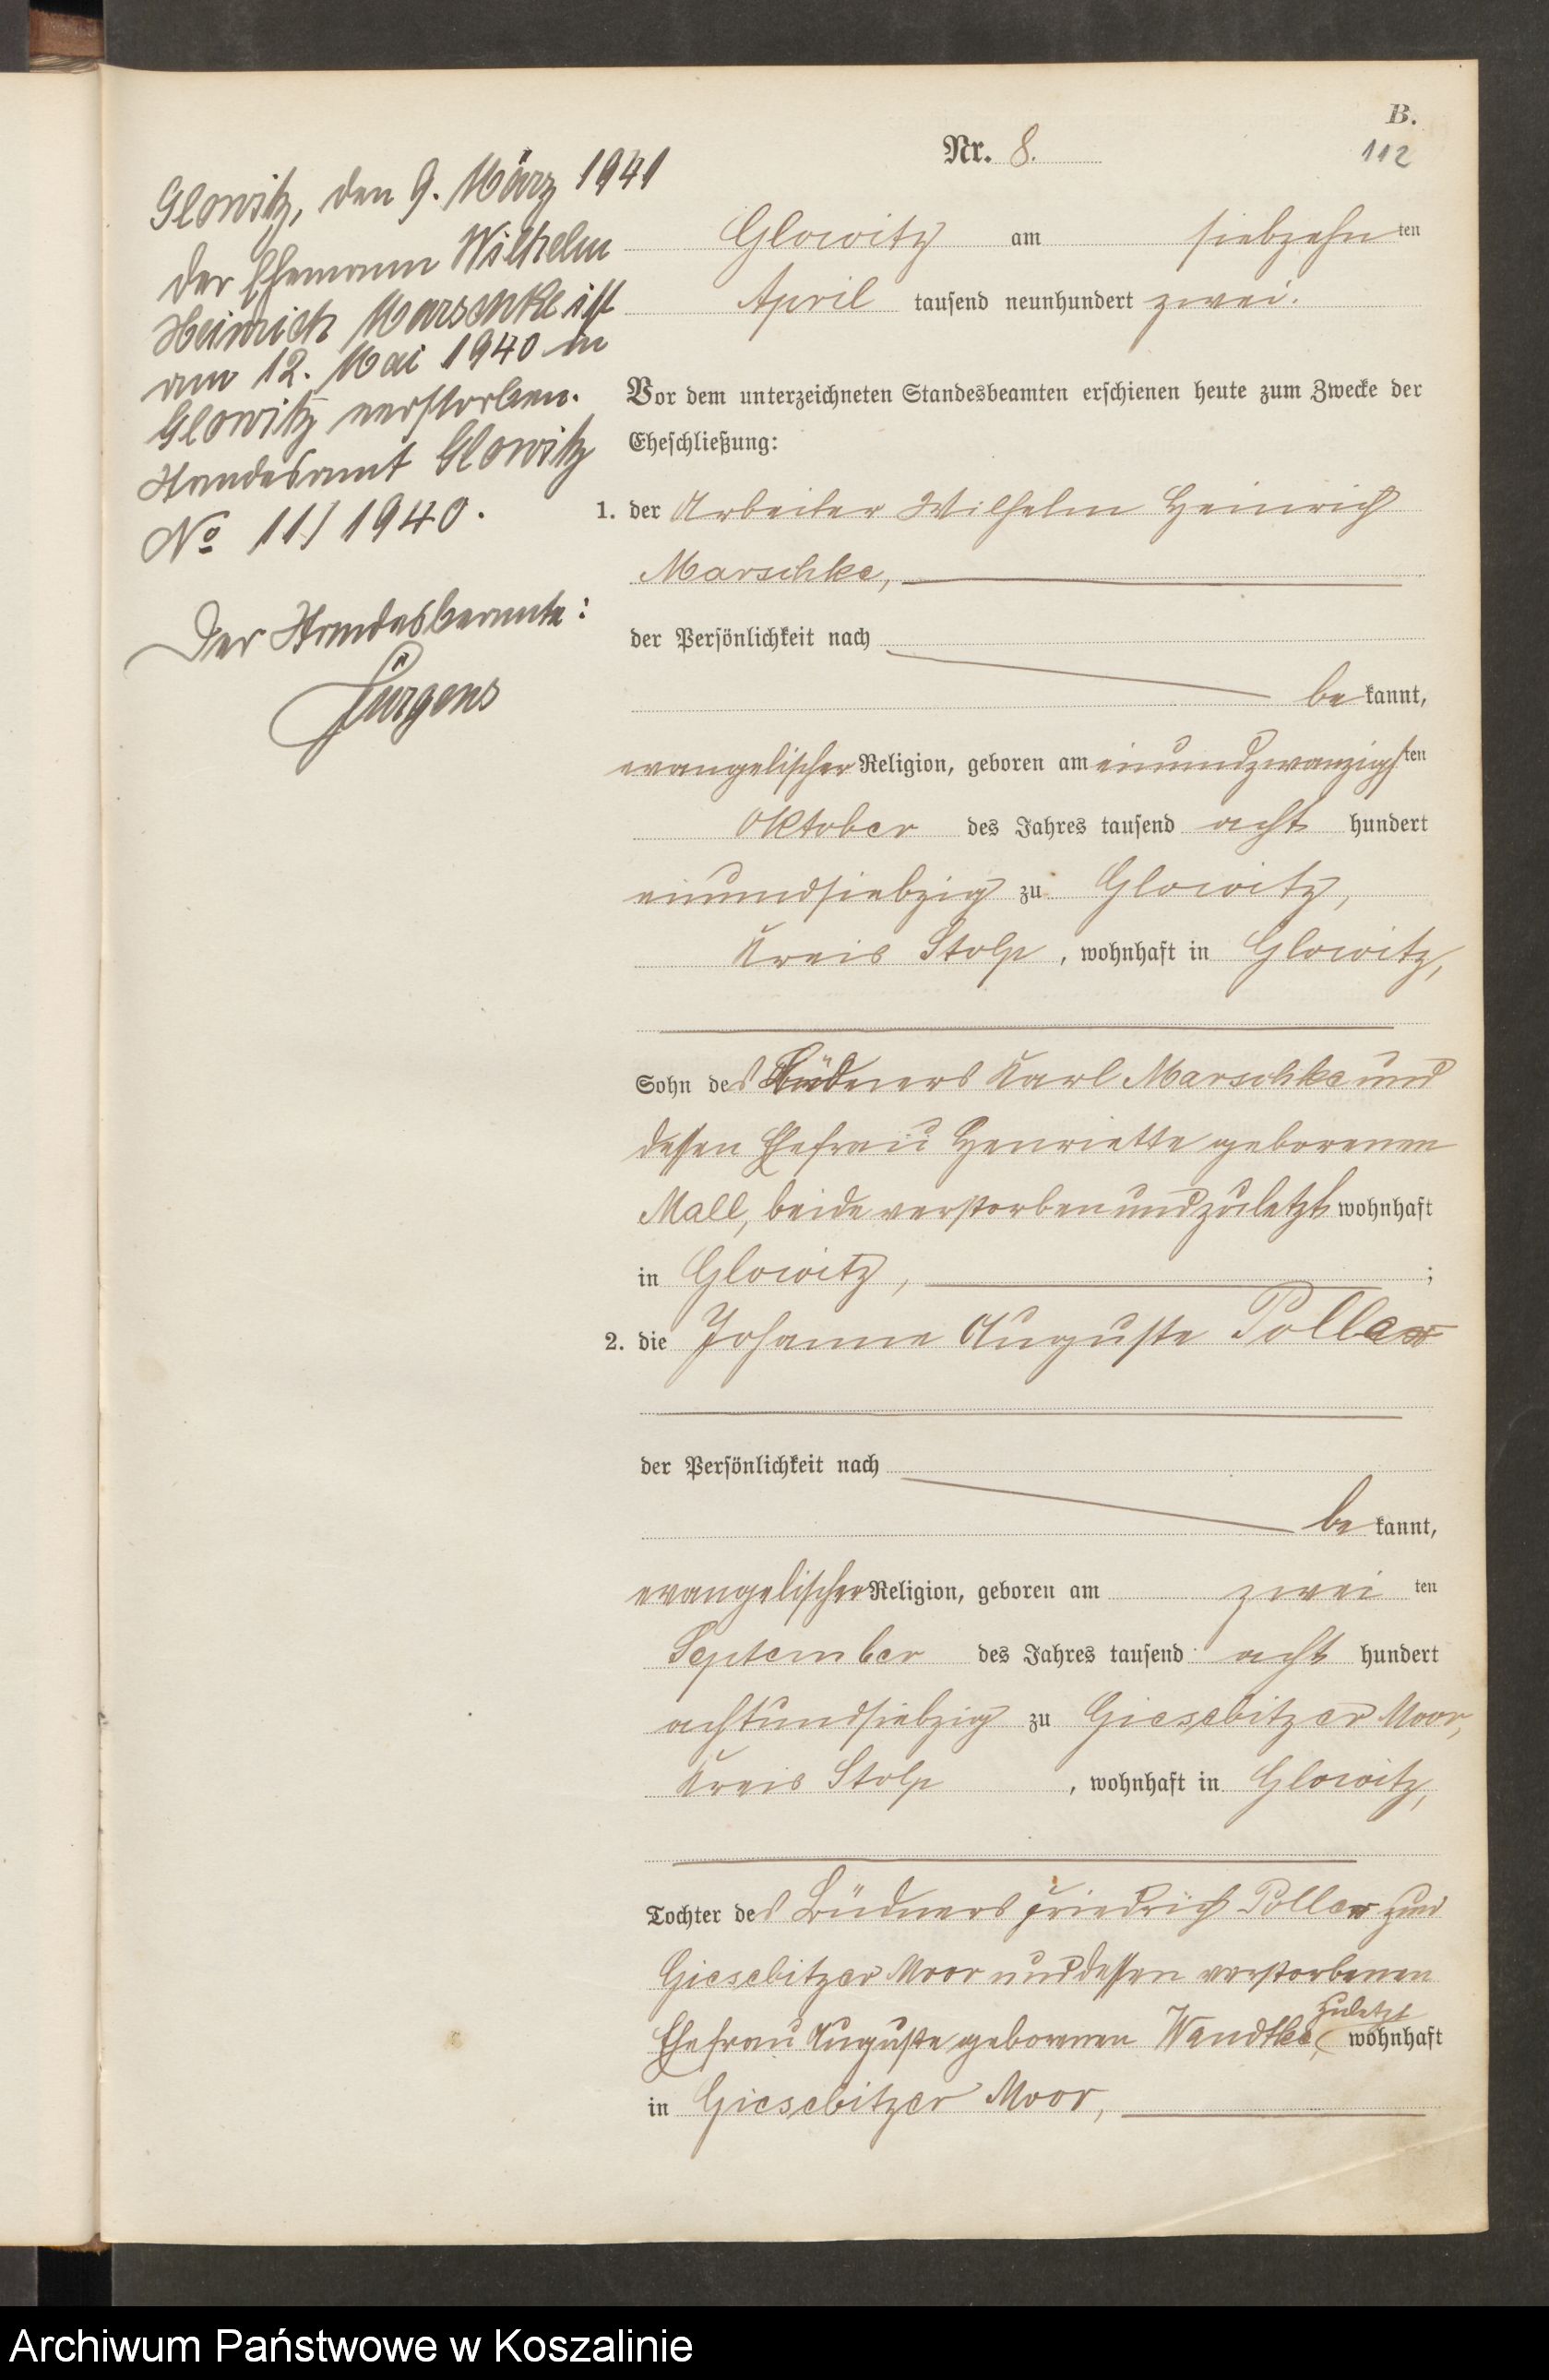 B.
112
Nr. 8.
Glowitz am siebzehn ten
April tausend neunhundert zwei.
Vor dem unterzeichneten Standesbeamten erschienen heute zum Zwecke der
Eheschließung:
1. der Arbeiter Wilhelm Heinrich
Marschke,
der Persönlichkeit nach
be kannt,
evangelischer Religion, geboren am einundzwanzigsten
Oktober des Jahres tausend acht hundert
einundsiebzig zu Glowitz,
Kreis Stolp, wohnhaft in Glowitz,
Sohn des Büdners Karl Marschke und
dessen Ehefrau Henriette geborenen
Mall, beide verstorben und zuletzt wohnhaft
in Glowitz, ;
2. die Johanne Auguste
der Persönlichkeit nach
be kannt,
evangelischer Religion, geboren am zwei ten
September des Jahres tausend acht hundert
achtundsiebzig zu Giesebitzer Moor,
Kreis Stolp, wohnhaft in Glowitz,
Tochter des Büdners Friedrich
Giesebitzer Moor und dessen verstorbenen
zuletzt
Ehefrau Auguste geborenen Wandtke, wohnhaft
in Giesebitzer Moor,
Glowitz, den 9. März 1941
Der Ehemann Wilhelm
Heinrich Marschke ist
am 12. Mai 1940 in
Glowitz verstorben.
Standesamt Glowitz
No 11/1940.
Der Standesbeamte:
Jürgens
Archiwum Państwowe w Koszalinie